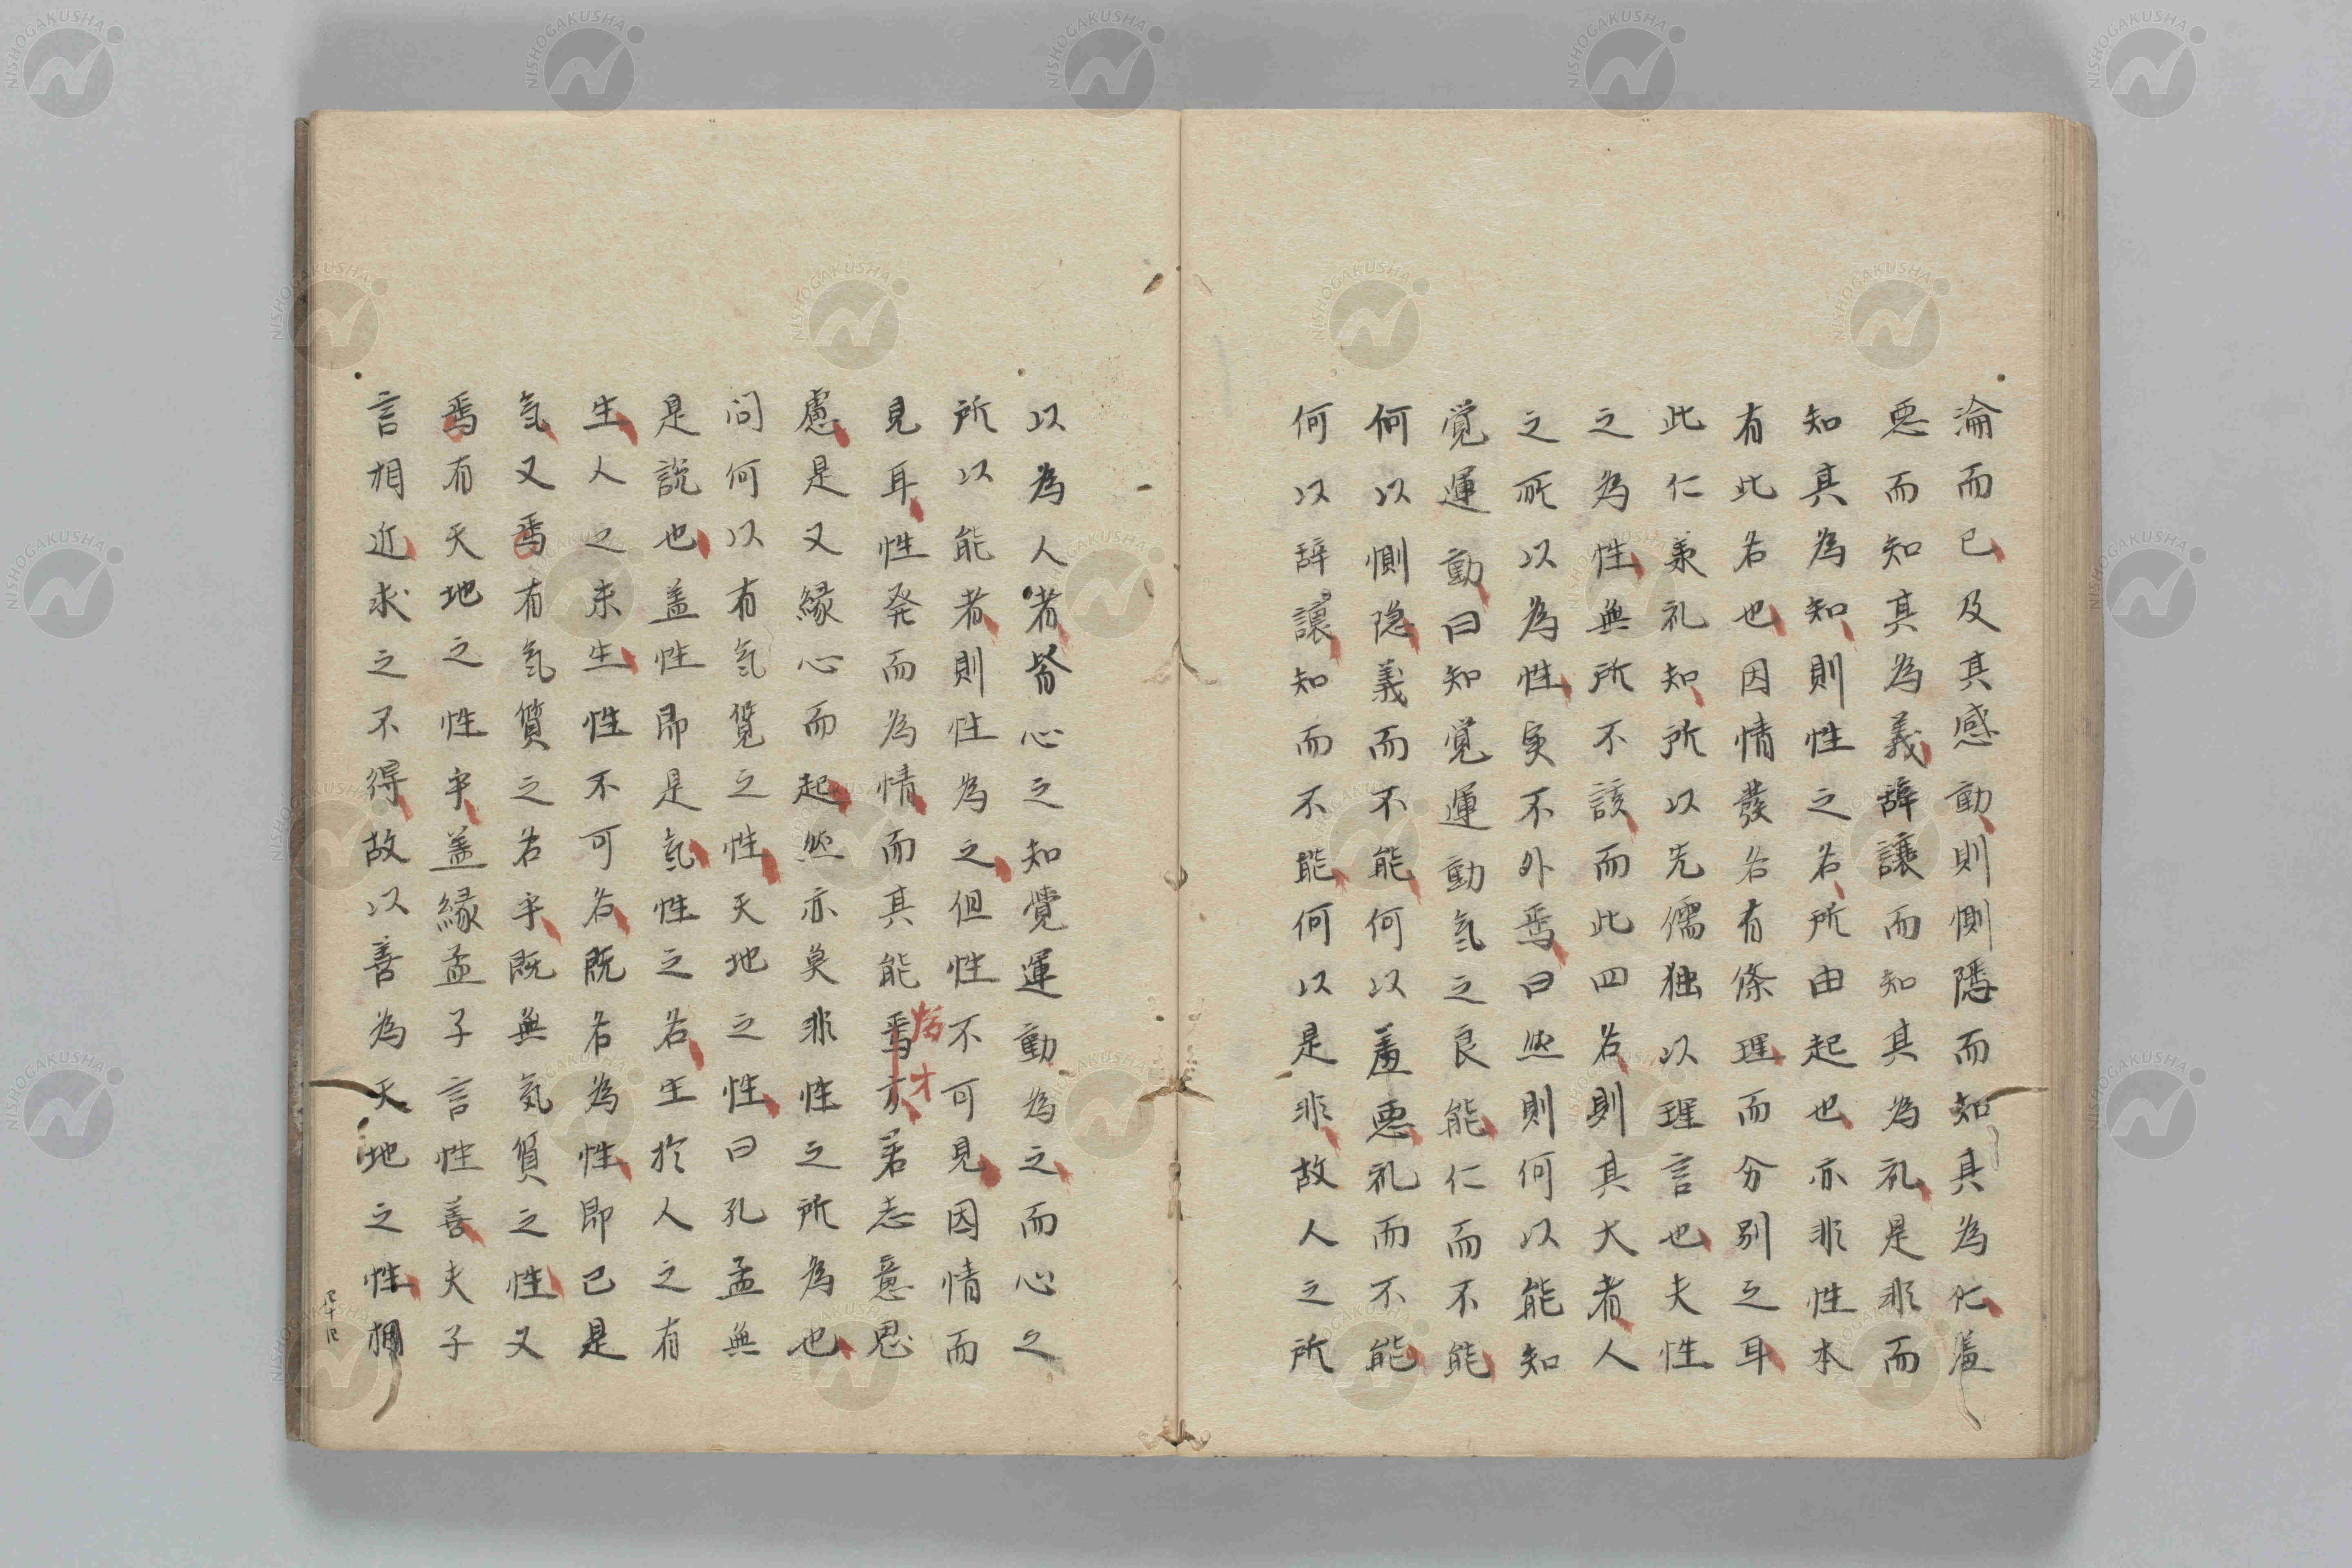 淪而已及其感動則惻隱而知其為仁羞
悪而知其為義辞讓而知其為礼是非而
知其為知知則性之名所由起也亦非性本
有此名也因情發名有條理而分別之耳
此仁義礼知所以先儒独以理言也夫性
之為性無所不該而此四名則其大者人
之所以為性奚不外焉曰然則何以能知
覚運動曰知覚運動氣之良能仁而不能
何以惻隐義而不能何以羞悪礼而不能
何以辞讓知而不能何以是非故人之所
以為人者皆心之知覚運動為之而心之
所以能者則性為之但性不可見因情而
見耳性発而為情而其能為才若志意思
慮是又緣心而起然亦莫非性之所為也
問何以有氣質之性天地之性曰孔孟無
是說也盖性即是氣性之名生於人之有
生人之未生性不可名既名為性即已是
氣又焉有氣質之名乎既無気質之性又
焉有天地之性乎盖緣孟子言性善夫子
言相近求之不得故以善為天地之性相
NISHOGAKUSHA